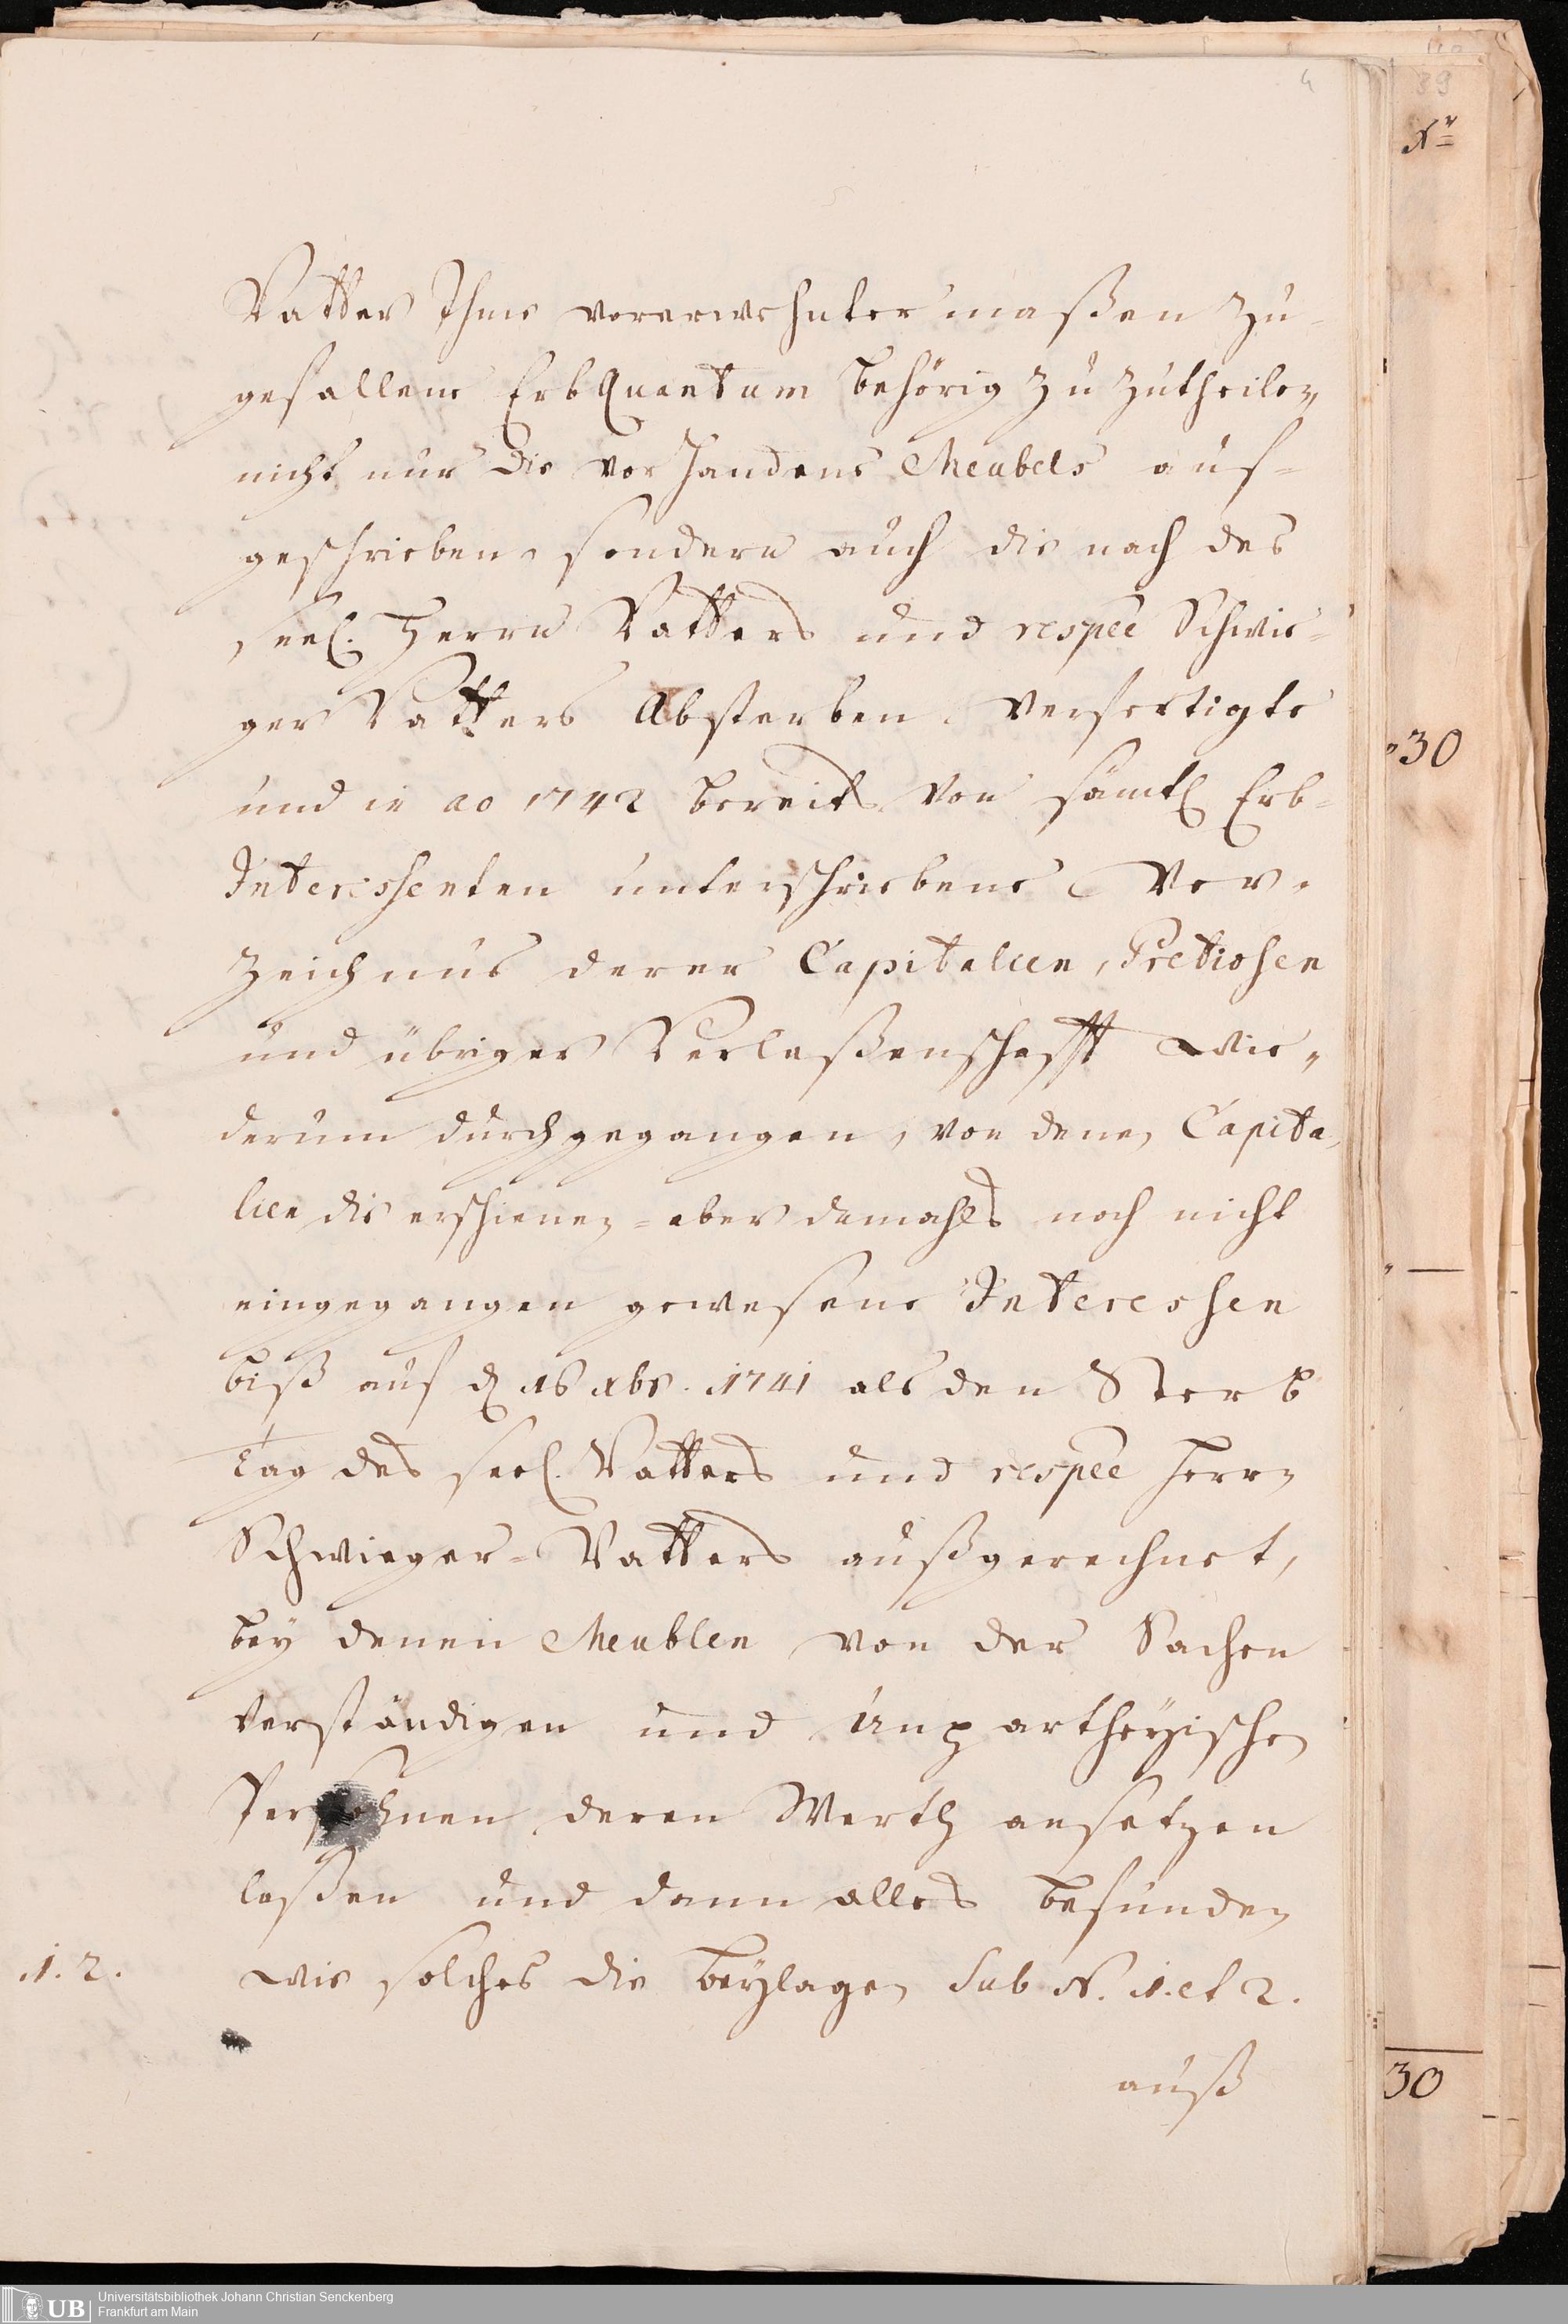 4
Vatter Ihme vorerwehnter maßen zu-
gefallene Erb Quantum behörig zu zutheilen
nicht nur die vorhandene Meubels auf=
geschrieben, sondern auch die nach des
seel. Herrn Vatters und respeê Schwie=
ger Vatters Absterben verfertigte
und in ao 1742 bereits von sämtl Erb=
Interessenten unterschriebene Ver=
zeichnus derer Capitalien, Pretiosen
und übriger Verlaßenschafft wie,,
derum durchgegangen, von denen Capita,
lien die erschienen= aber damahls noch nicht
eingegangen gewesene Interessen
biß auf d 16 xbr. 1741 als den Sterb
Tag des seel. Vatters und respeê Herrn
Schwieger=Vatters außgerechnet,
bey denen Meublen von der Sachen
verständigen und Unpartheyischen
Persohnen deren Werth ansetzen
laßen und dann alles befunden
1. 2. wie solches die beylagen Sub N. 1. et 2.
auß
39
Xr
30
30
UB Universitätsbibliothek Johann Christian Senckenberg
Frankfurt am Main